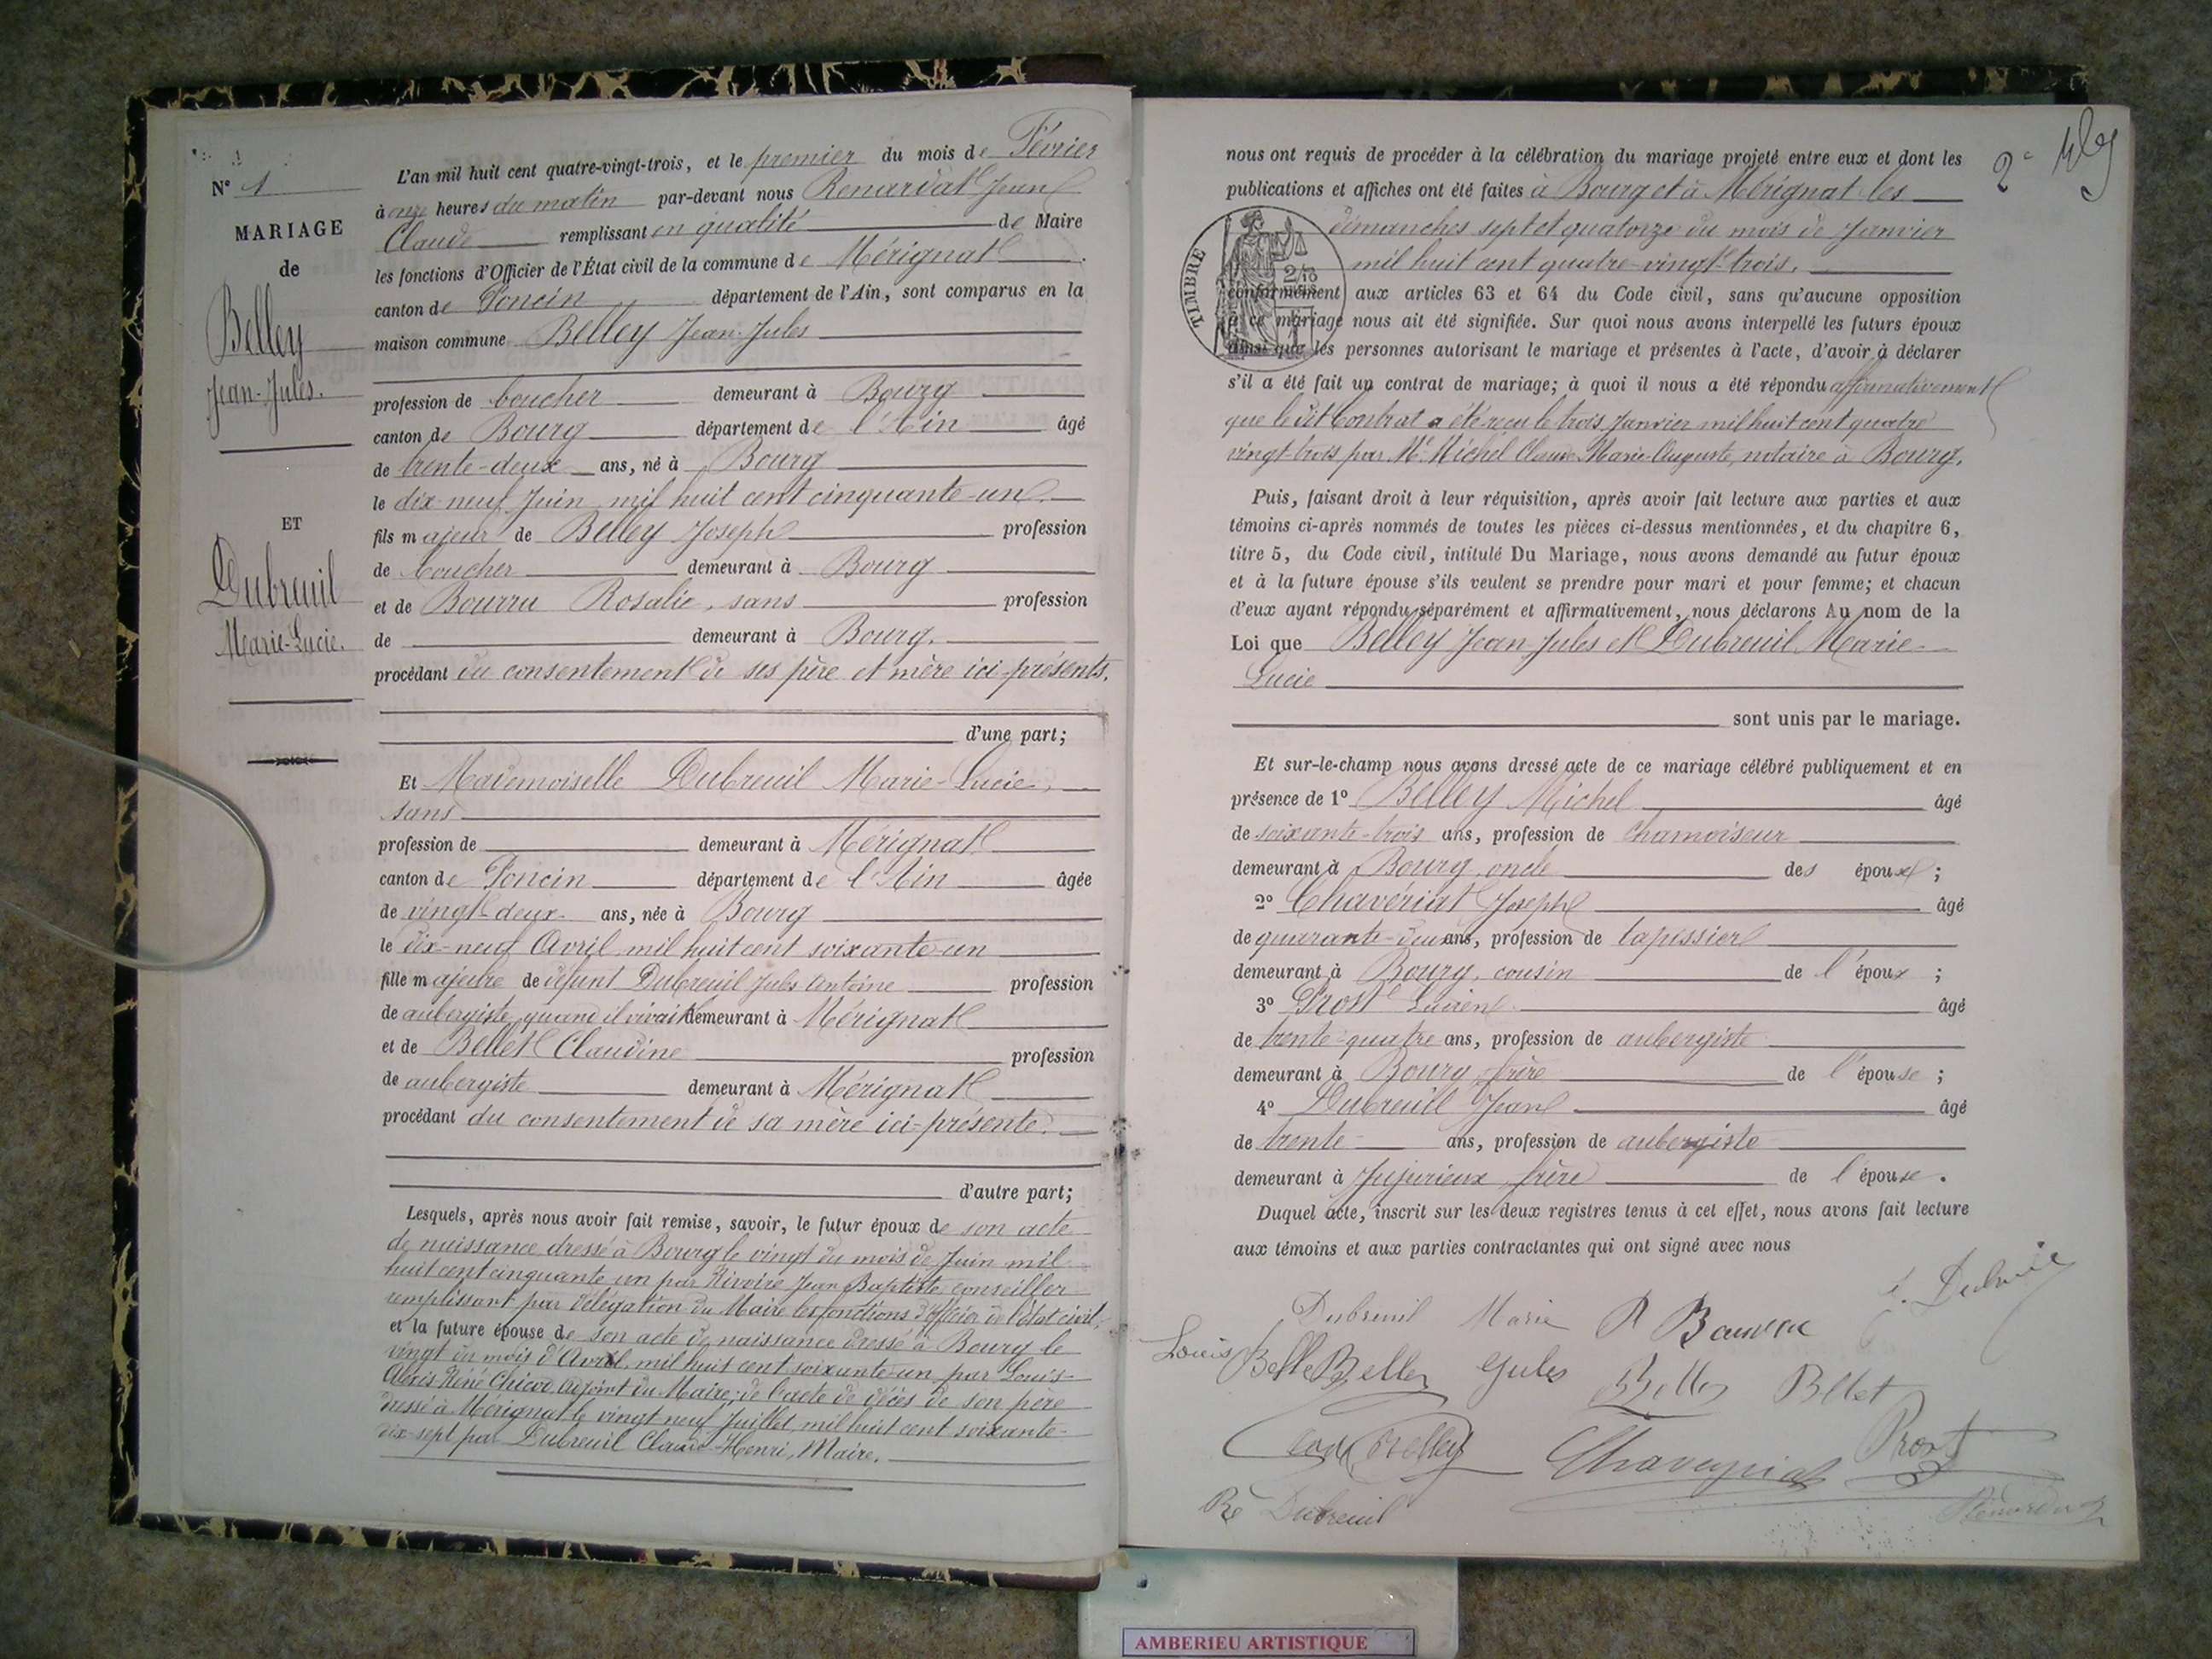 N° 1
MARIAGE
de
Belley
Jean-Jules.
ET
Dubreuil
Marie-Lucie.
L'an mil huit cent quatre-vingt-trois, et le premier du mois de Février
à onze heures du matin par-devant nous Renardat Jean
Claude remplissant en qualité de Maire
les fonctions d'Officier de l'État civil de la commune de Mérignat.
canton de Poncin département de l'Ain, sont comparus en la
maison commune Belley Jean-Jules
profession de boucher demeurant à Bourg
canton de Bourg département de l'Ain âgé
de trente-deux ans, né à Bourg
le dix-neuf Juin mil huit cent cinquante-un.
fils majeur de Belley Joseph profession
de boucher demeurant à Bourg
et de Bourru Rosalie, sans profession
de demeurant à Bourg.
procédant du consentement de ses père et mère ici-présents,
d'une part;
Et Mademoiselle Dubreuil Marie-Lucie,
sans
profession de demeurant à Mérignat
canton de Poncin département de l'Ain âgée
de vingt-deux ans, née à Bourg
le dix-neuf Avril mil huit cent soixante-un
fille majeure de défunt Dubreuil Jules Antoine profession
de aubergiste quand il vivait demeurant à Mérignat
et de Bellet Claudine profession
de aubergiste demeurant à Mérignat
procédant du consentement de sa mère ici-présente.
d'autre part;
Lesquels, après nous avoir fait remise, savoir, le futur époux de son acte
de naissance dressé à Bourg le vingt du mois de Juin mil
huit cent cinquante un par Rivoire Jean Baptiste conseiller
remplissant par délégation du Maire les fonctions d'Officier de l'état civil,
et la future épouse de son acte de naissance dressé à Bourg le
vingt du mois d'Avril mil huit cent soixante-un par Louis-
Alexis René Chicod adjoint du Maire; de l'acte de décès de son père
dressé à Mérignat le vingt neuf Juillet mil huit cent soixante-
dix-sept par Dubreuil Claude-Henri, Maire.
2e
nous ont requis de procéder à la célébration du mariage projeté entre eux et dont les
publications et affiches ont été faites à Bourg et à Mérignat les
dimanches sept et quatorze du mois de Janvier
mil huit cent quatre-vingt-trois,
TIMBRE
conformément aux articles 63 et 64 du Code civil, sans qu'aucune opposition
à ce mariage nous ait été signifiée. Sur quoi nous avons interpellé les futurs époux
ainsi que les personnes autorisant le mariage et présentes à l'acte, d'avoir à déclarer
s'il a été fait un contrat de mariage; à quoi il nous a été répondu affirmativement
que le dit Contrat a été reçu le trois Janvier mil huit cent quatre
vingt-trois par Me Michel Claude Marie-Auguste, notaire à Bourg.
Puis, faisant droit à leur réquisition, après avoir fait lecture aux parties et aux
témoins ci-après nommés de toutes les pièces ci-dessus mentionnées, et du chapitre 6,
titre 5, du Code civil, intitulé Du Mariage, nous avons demandé au futur époux
et à la future épouse s'ils veulent se prendre pour mari et pour femme; et chacun
d'eux ayant répondu séparément et affirmativement, nous déclarons Au nom de la
Loi que Belley Jean Jules et Dubreuil Marie-
Lucie
sont unis par le mariage.
Et sur-le-champ nous avons dressé acte de ce mariage célébré publiquement et en
présence de 1° Belley Michel âgé
de soixante-trois ans, profession de chamoiseur
demeurant à Bourg, oncle des époux;
2° Chavériat Joseph âgé
de quarante-deux ans, profession de tapissier
demeurant à Bourg, cousin de l'époux;
3° Prost Lucien âgé
de trente-quatre ans, profession de aubergiste
demeurant à Bourg, frère de l'épouse;
4° Dubreuil Jean âgé
de trente ans, profession de aubergiste
demeurant à Jujurieux, frère de l'épouse.
Duquel acte, inscrit sur les deux registres tenus à cet effet, nous avons fait lecture
aux témoins et aux parties contractantes qui ont signé avec nous
Dubreuil Marie
Louis Belley Jules Belley Bellet
Belley Chaveyriat Prost
Dubreuil Renardat
AMBERIEU ARTISTIQUE